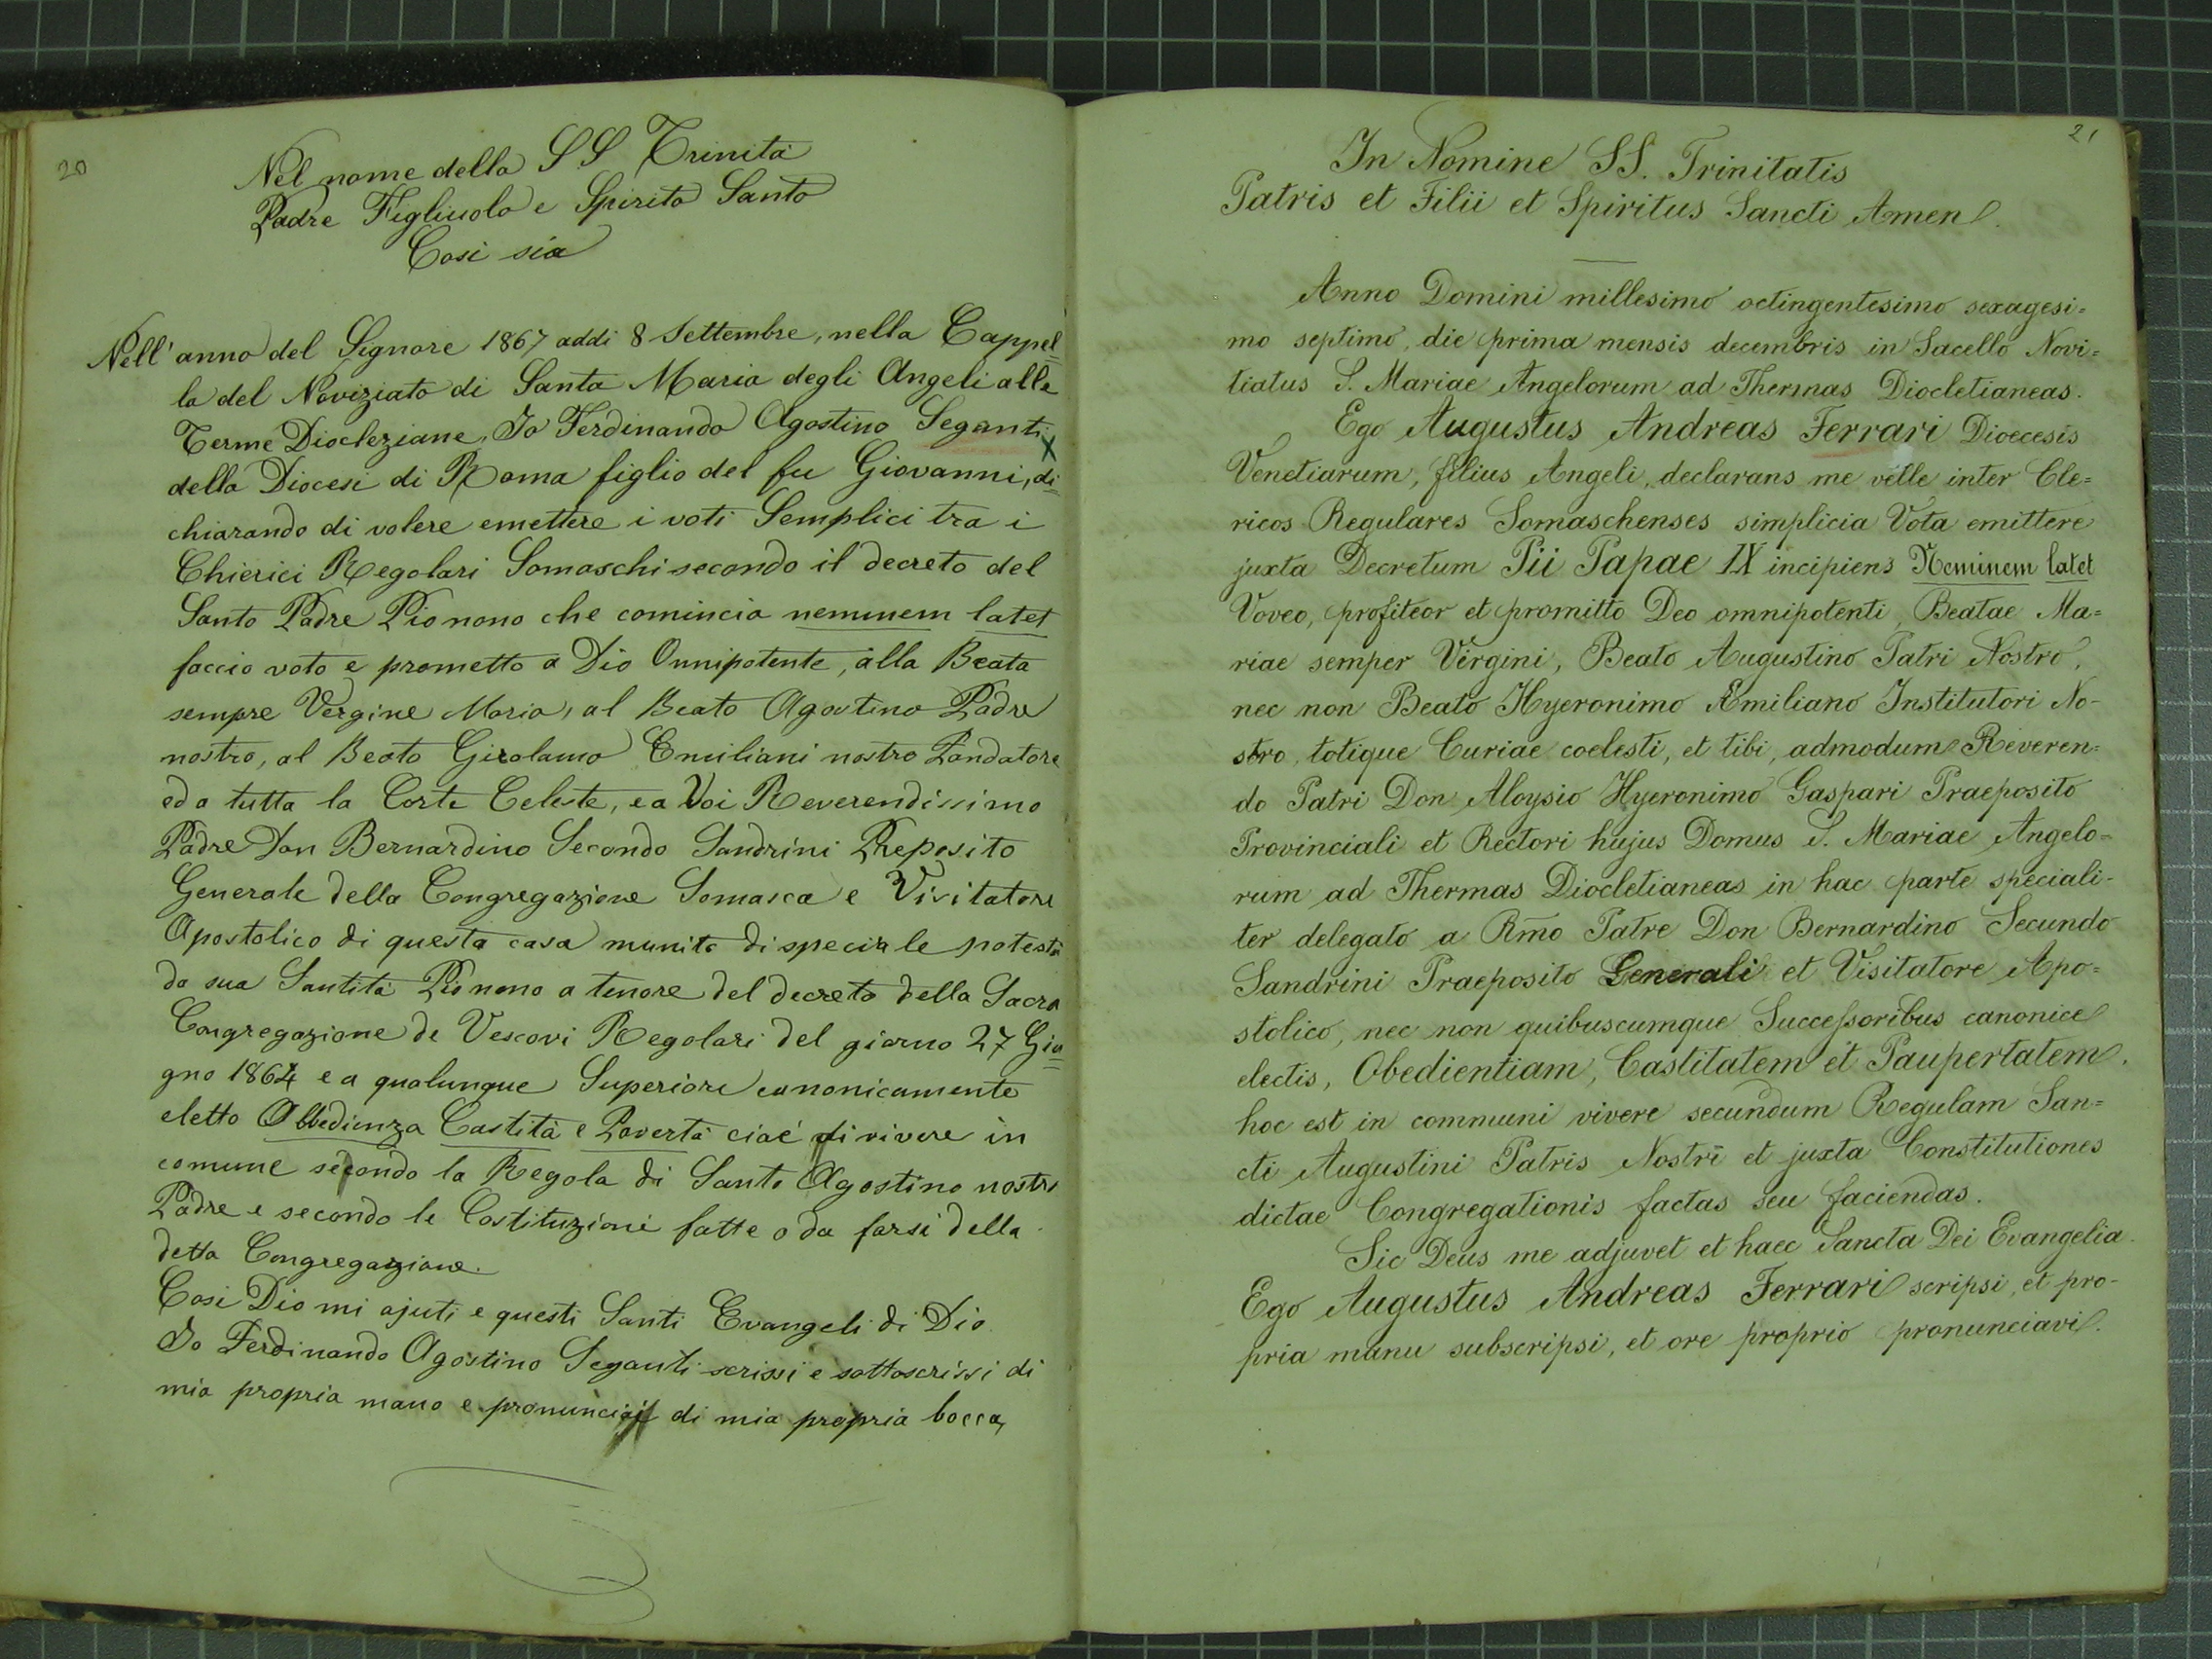 20
Nel nome della SS Trinità
Padre Figliuolo e Spirito Santo
Cosi sia
Nell' anno del Signore 1867 addi 8 Settembre, nella Cappel=
la del Noviziato di Santa Maria degli Angeli alle
Terme Diocleziane, Io Ferdinando Agostino Seganti
della Diocesi di Roma figlio del fu Giovanni, di=
chiarando di volere emettere i voti Semplici tra i
Chierici Regolari Somaschi secondo il decreto del
Santo Padre Pio nono che comincia neminem latet
faccio voto e prometto a Dio Onnipotente, alla Beata
sempre Vergine Maria, al Beato Agostino Padre
nostro, al Beato Girolamo Emiliani nostro Fondatore
ed a tutta la Corte Celeste, e a Voi Reverendissimo
Padre Don Bernardino Secondo Sandrini Preposito
Generale della Congregazione Somasca e Visitatore
Apostolico di questa casa munito di speciale potestà
da sua Santità Pio nono a tenore del decreto della Sacra
Congregazione de Vescovi Regolari del giorno 27 Giu=
gno 1864 e a qualunque Superiore canonicamente
eletto Obbedienza Castità e Povertà cioé di vivere in
comune secondo la Regola di Santo Agostino nostro
Padre e secondo le Costituzioni fatte o da farsi della
detta Congregazione.
Cosi Dio mi ajuti e questi Santi Evangeli di Dio
Io Ferdinando Agostino Seganti scrissi e sottoscrissi di
mia propria mano e pronunciai di mia propria bocca,
21
In Nomine SS. Trinitatis
Patris et Filii et Spiritus Sancti Amen.
Anno Domini millesimo octingentesimo sexagesi=
mo septimo, die prima mensis decembris in Sacello Novi=
tiatus S. Mariae Angelorum ad Thermas Diocletianeas.
Ego Augustus Andreas Ferrari Dioecesis
Venetiarum, filius Angeli, declarans me velle inter Cle=
ricos Regulares Somaschenses simplicia Vota emittere
juxta Decretum Pii Papae IX incipiens Neminem latet
Voveo, profiteor et promitto Deo omnipotenti, Beatae Ma=
riae semper Virgini, Beato Augustino Patri Nostro,
nec non Beato Hyeronimo Æmiliano Institutori No-
stro, totique Curiae coelesti, et tibi, admodum Reveren=
do Patri Don Aloysio Hyeronimo Gaspari Praeposito
Provinciali et Rectori hujus Domus S. Mariae Angelo=
rum ad Thermas Diocletianeas in hac parte speciali-
ter delegato a Rm̃o Patre Don Bernardino Secundo
Sandrini Praeposito Generali et Visitatore Apo=
stolico, nec non quibuscumque Successoribus canonice
electis, Obedientiam, Castitatem et Paupertatem,
hoc est in communi vivere secundum Regulam San=
cti Augustini Patris Nostri et juxta Constitutiones
dictae Congregationis factas seu faciendas.
Sic Deus me adjuvet et haec Sancta Dei Evangelia.
Ego Augustus Andreas Ferrari scripsi, et pro-
pria manu subscripsi, et ore proprio pronunciavi.